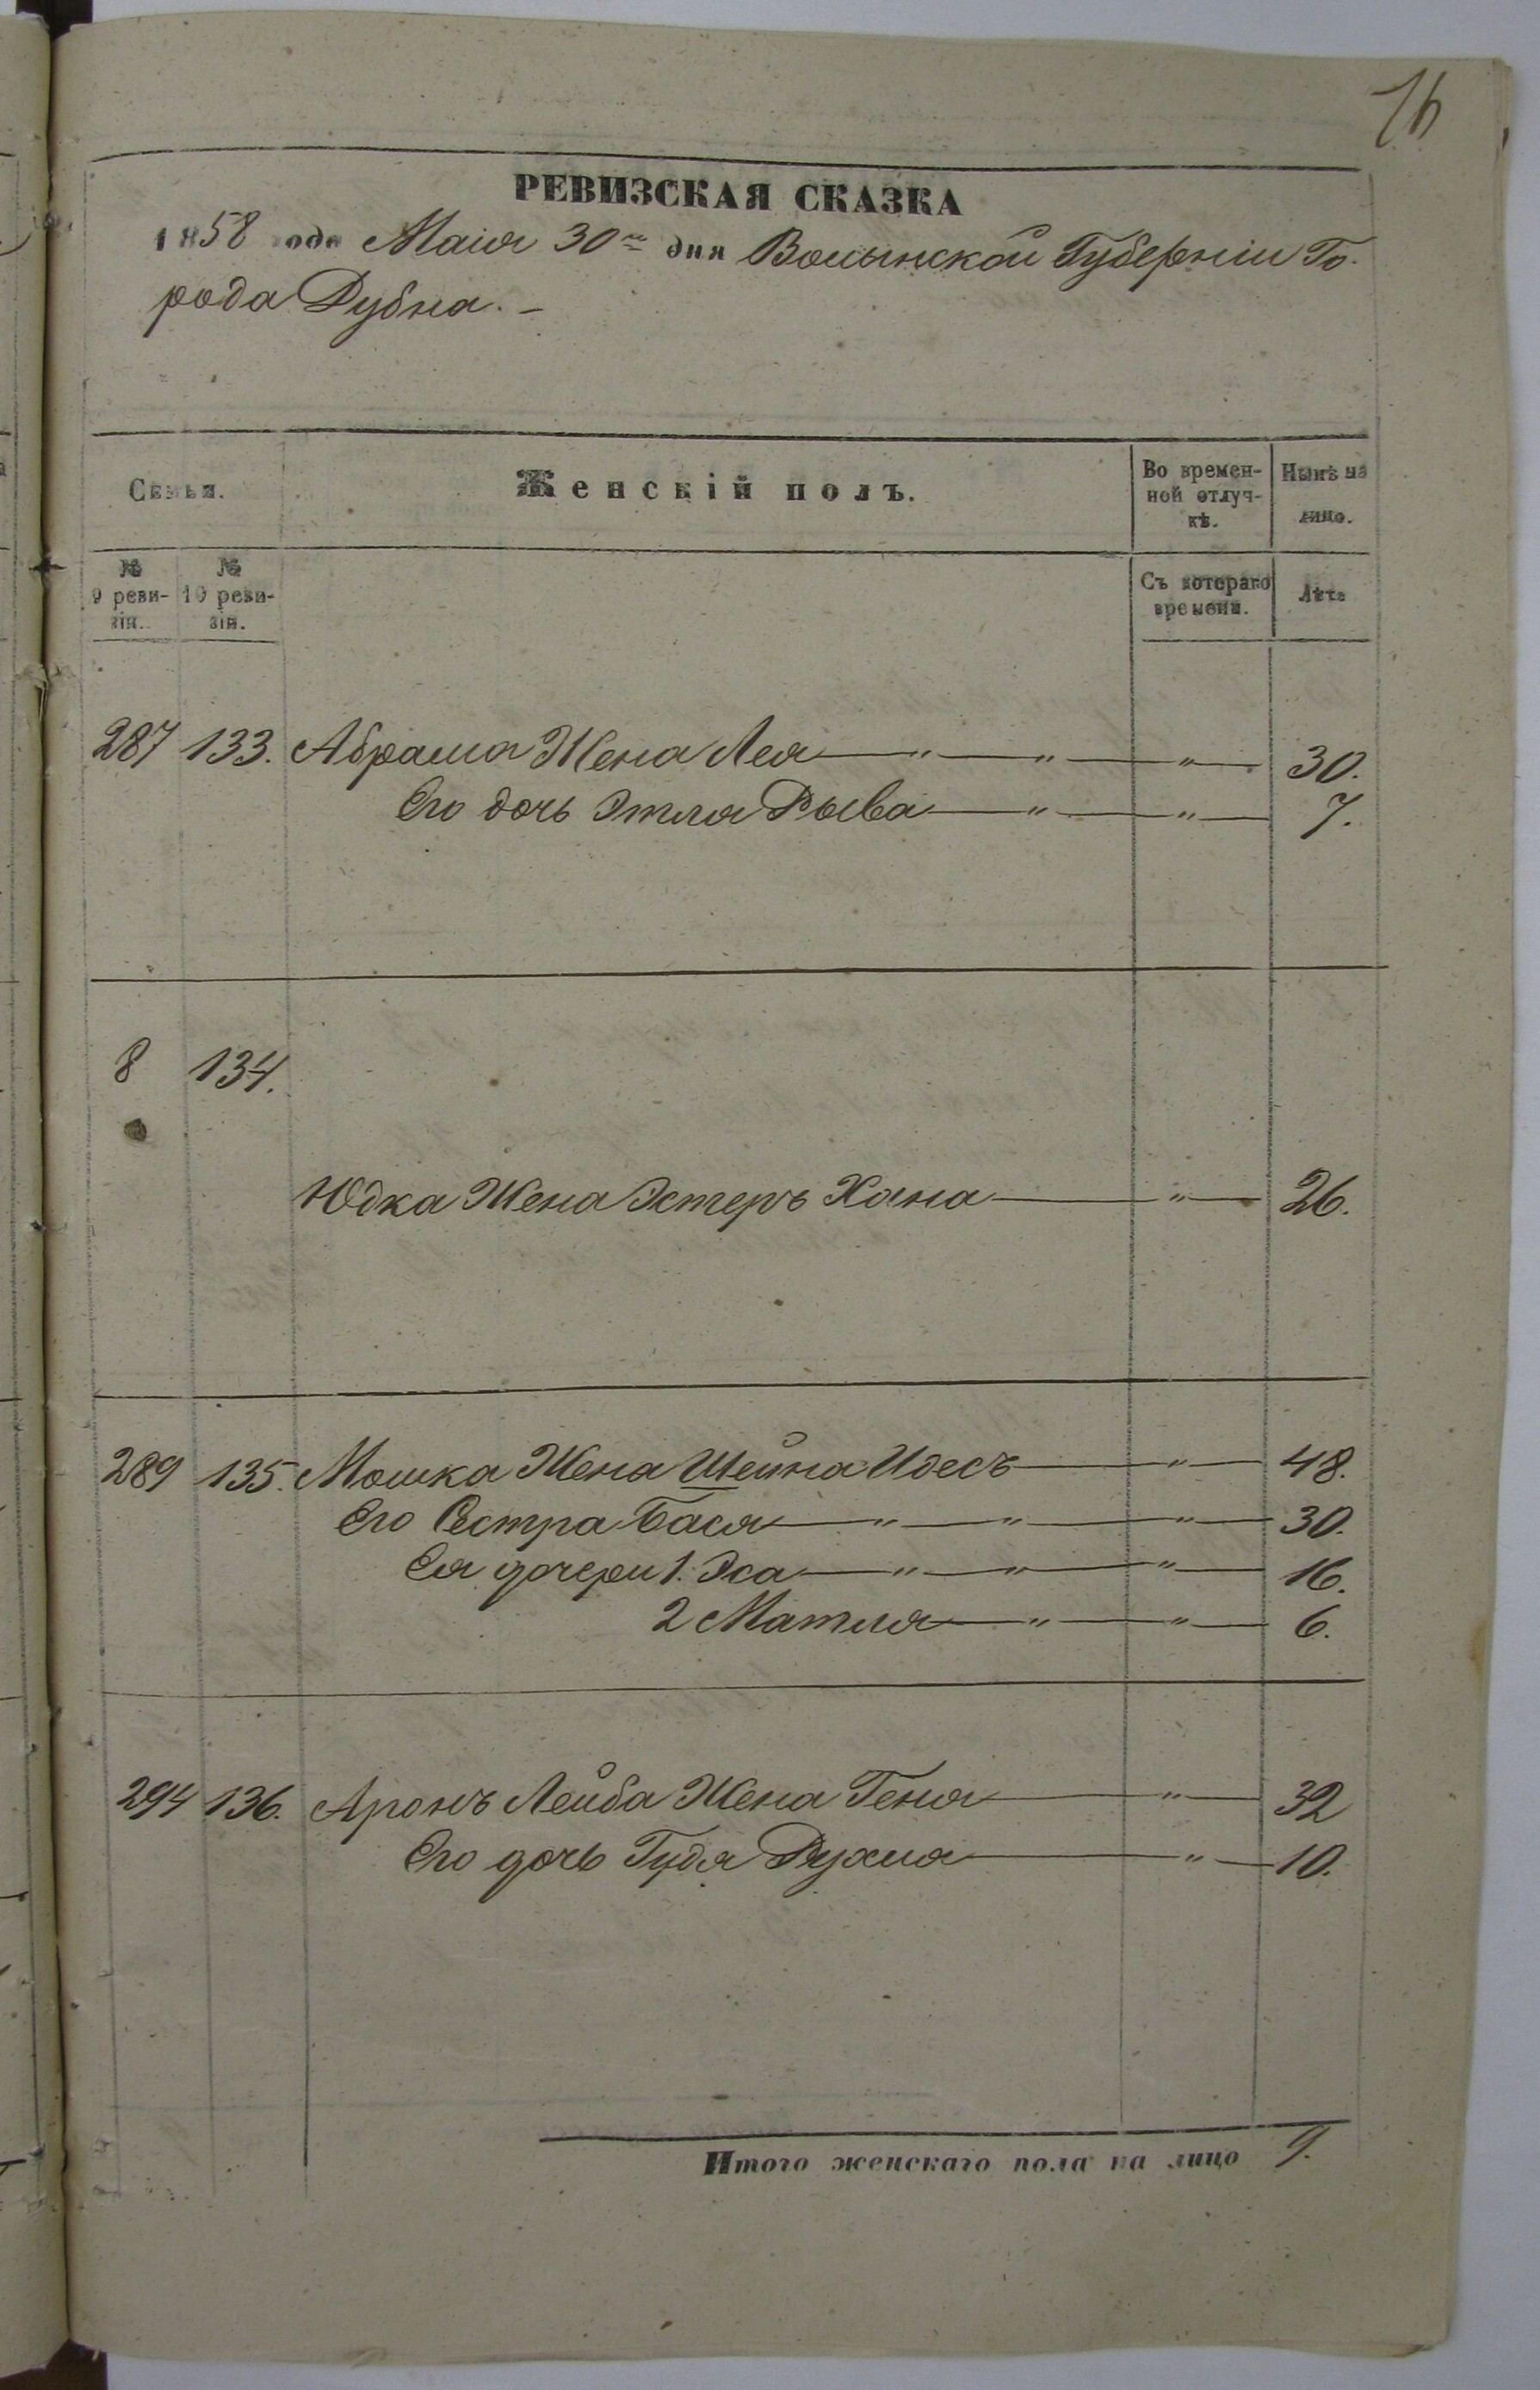 16
РЕВИЗСКАЯ СКАЗКА
1858 года Маія 30го дня Волынской Губерніи Го-
рода Дубна.
Семьи.
Женскій полъ.
Во времен-
ной отлуч-
кѣ.
Нынѣ на
лицо.
№
9 реви-
зіи.
№
10 реви-
зіи.
Съ котораго
времени.
Лѣта
287 133. Абрама Жена Лея — " — " — " — 30.
Его дочь Этля Рыва — " — " — 7.
8 134.
Юдка Жена Эстеръ Хана — " — 26.
289 135. Мошка Жена Шейна Идесъ — " — 48.
Его Сестра Бася — " — " — " — 30.
Ея дочери 1. Эса — " — " — " — 16.
2 Матля — " — " — 6.
294 136. Аронъ Лейба Жена Геня — " — 32
Его дочь Гудя Рухля — " — 10.
Итого женскаго пола на лицо 9.